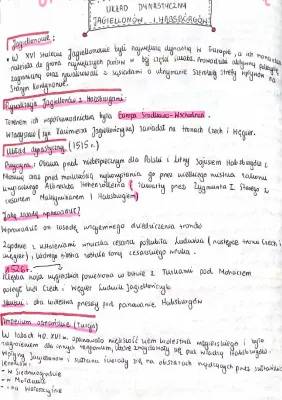 UKŁAD DYNASTYCZNY
JAGIELLONÓW I HABSBURGÓW
Jagiellonowie:
• W XVI stuleciu Jagiellonowie byli największą dynastią w Europie, a ich monarchia
należała do grona największych państw w tej części świata. Prowadziła aktywną politykę
zagraniczną oraz rywalizowali z sąsiadami o utrzymanie szerokiej strefy wpływów na
Starym kontynencie.
Rywalizacja Jagiellonów z Habsburgami:
Terenem ich współzawodnictwa była Europa Środkowo-Wschodnia.
Władysław (syn Kazimierza Jagiellończyka) zasiadał na tronach Czech i Węgier.
Układ dynastyczny (1515 r.)
Przyczyna: Obawa przed niebezpiecznym dla Polski i Litwy sojuszem Habsburgów z
Moskwą oraz przed możliwością wykorzystania go przez wielkiego mistrza zakonu
krzyżackiego Albrechta Hohenzollerna (zawarty przez Zygmunta I Starego z
cesarzem Maksymilianem I Habsburgiem)
Jaką zasadę wprowadzał?
Wprowadzał on zasadę wzajemnego dziedziczenia tronów
Zgodnie z ustaleniami wnuczka cesarza poślubiła Ludwika (następcę tronu Czech i
Węgier), którego siostra została żoną cesarskiego wnuka.
1526r.
Klęska wojsk węgierskich poniesiona w bitwie z Turkami pod Mohaczem
poległ król Czech i Węgier Ludwik Jagiellończyk
Skutek: oba królestwa przeszły pod panowanie Habsburgów
Imperium osmańskie (Turcja)
W latach 40. XVI w. opanowało większość ziem królestwa węgierskiego i było
zagrożeniem dla innych regionów, które znajdowały się pod władzą Habsburgów.
Wpływy Jagiellonów i sułtana ścierały się na obszarach rządzonych przez sułtańskich
lenników:
- w Siedmiogrodzie
- w Mołdawii
- na Wołoszczyźnie